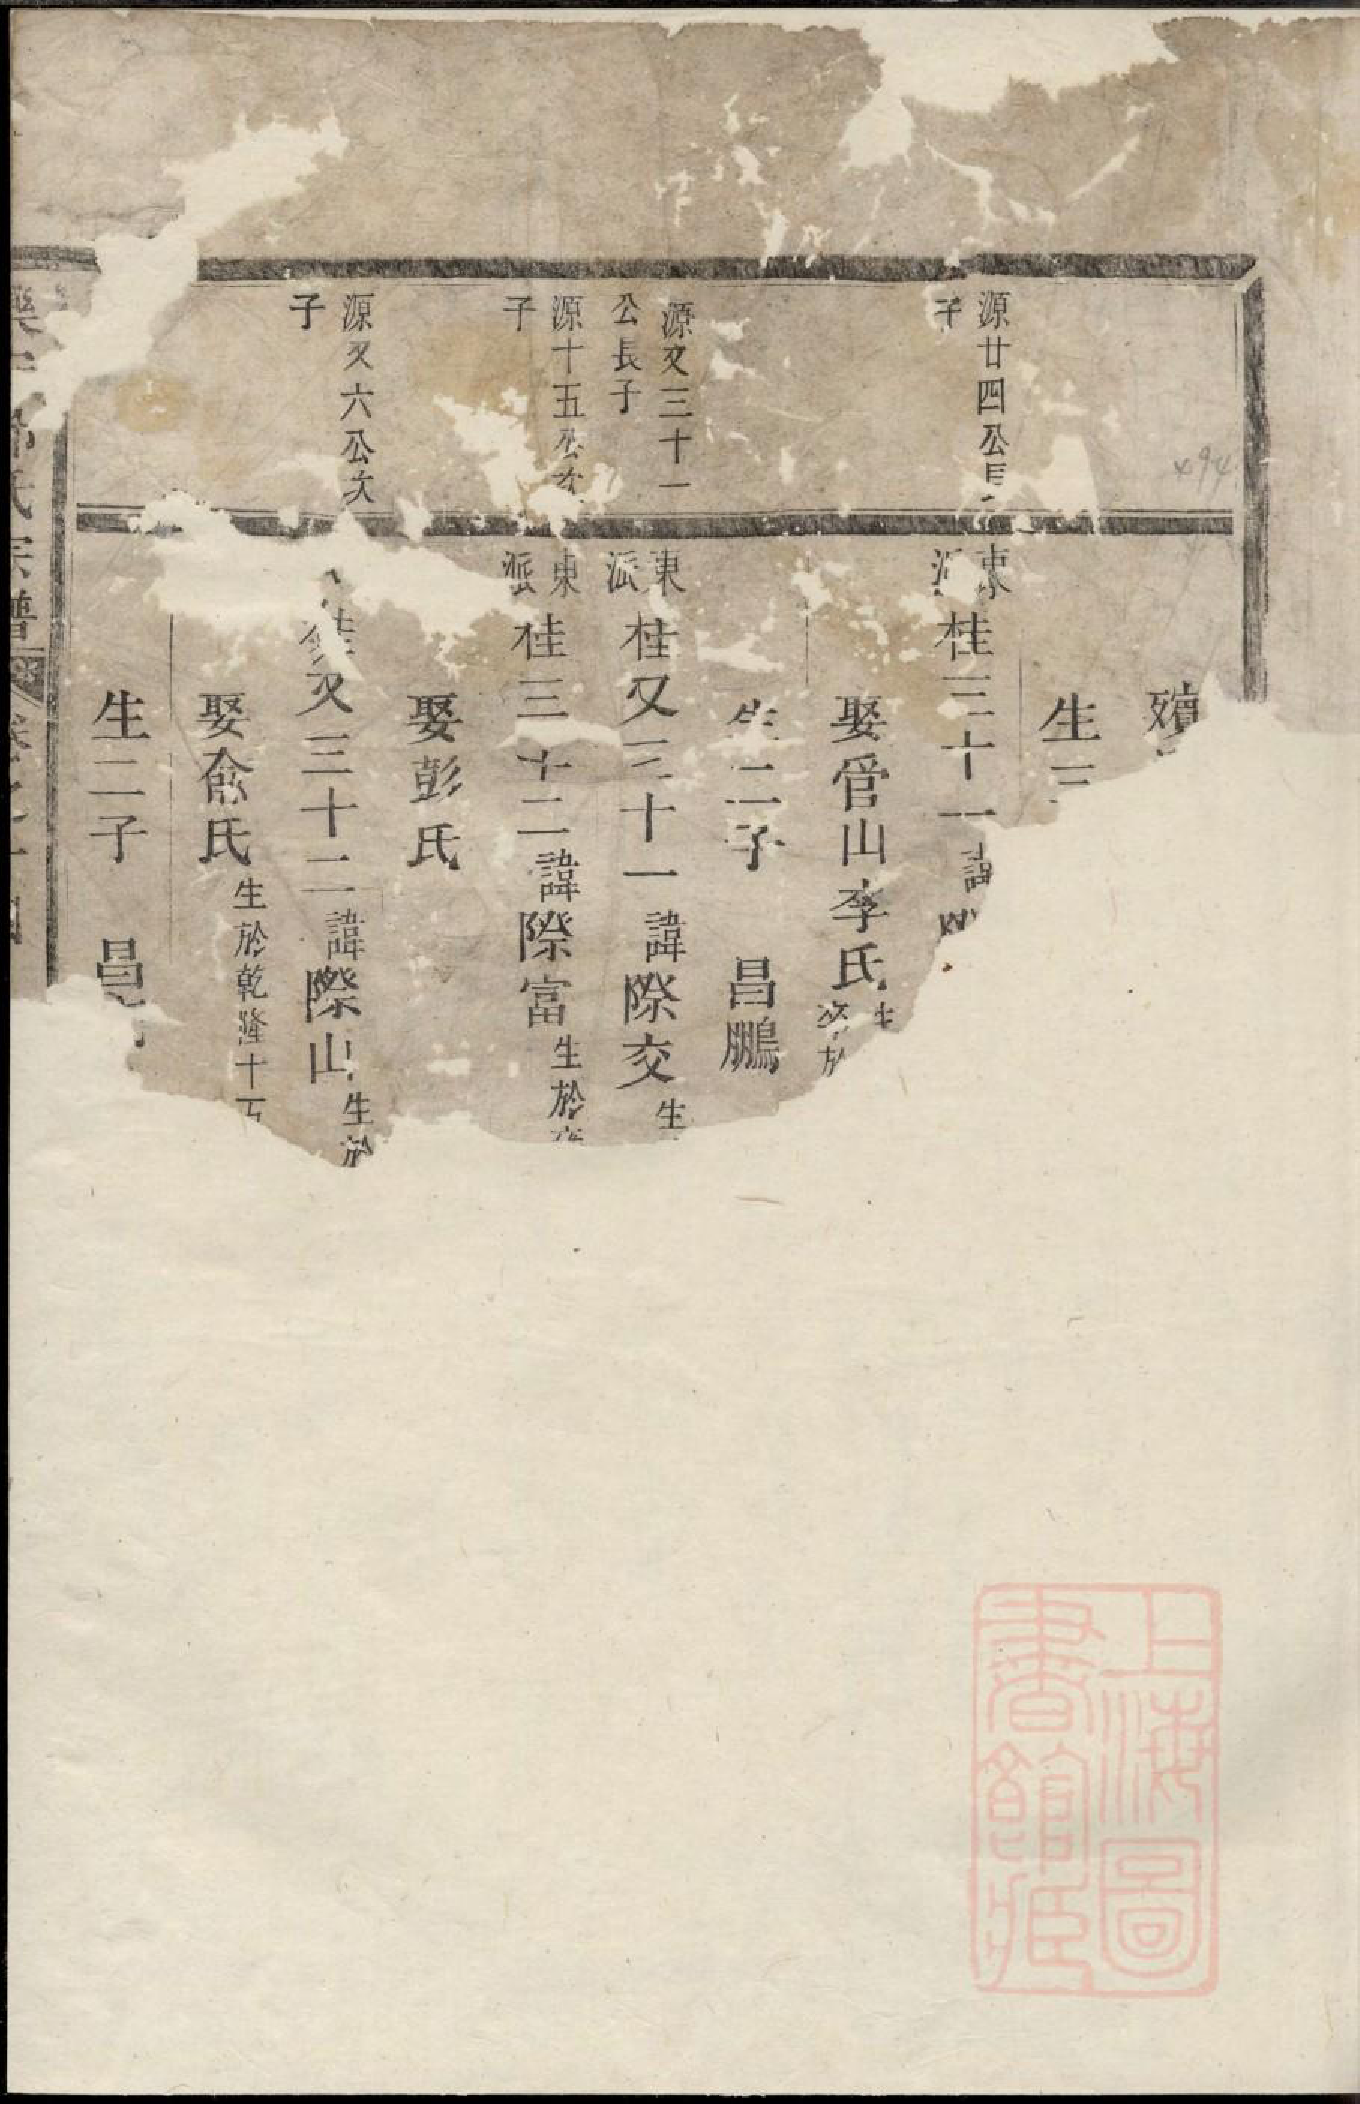 生三
源廿四公長
子
東
派
桂三十一諱
娶管山李氏
生
卒於
生二子 昌鵬
源又三十一
公長子
東
派
桂又三十一諱際交
生
源十五公次
子
東
派
桂三十二諱際富
生於
娶彭氏
源又六公次
子
桂又三十二諱際山
生於
娶俞氏
生於乾隆十五
生二子 昌
氏宗譜
上海圖
書館藏